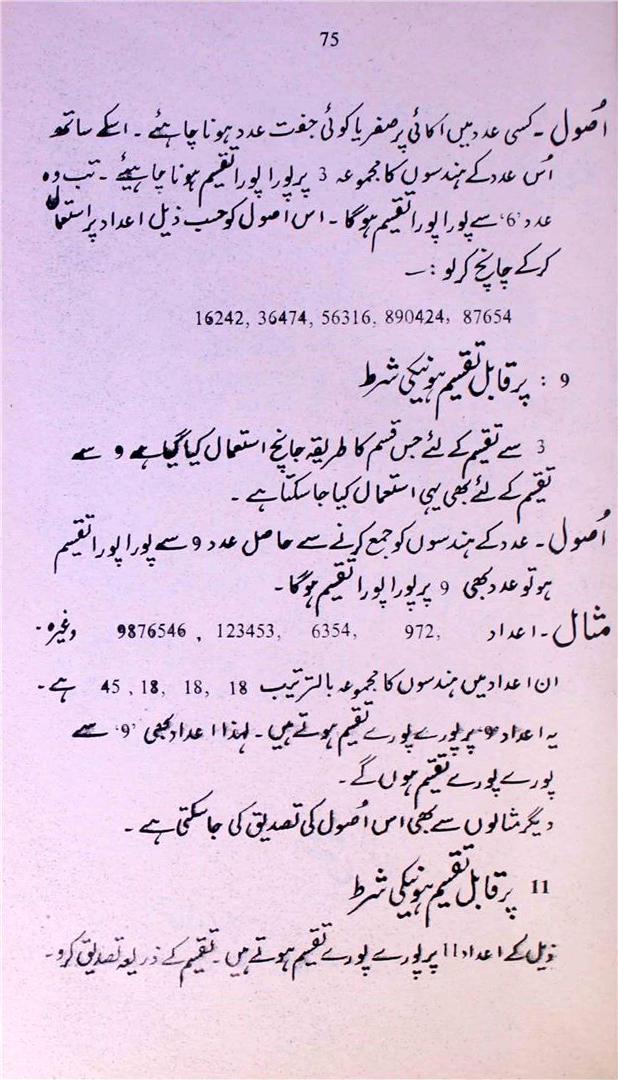 75
اُصول۔ کسی عدد میں اکائی پر صفر یا کوئی جفت عدد ہونا چاہئے۔ اسکے ساتھ
اُس عدد کے ہندسوں کا مجموعہ 3 پر پورا پورا تقسیم ہونا چاہیئے۔ تب وہ
عدد '6' سے پورا پورا تقسیم ہوگا۔ اس اصول کو حسب ذیل اعداد پر استعمال
کرکے جانچ کرلو :۔
16242, 36474, 56316, 890424, 87654
9 : پر قابل تقسیم ہونیکی شرط
3 سے تقسیم کے لئے جس قسم کا طریقہ جانچ استعمال کیا گیا ہے 9 سے
تقسیم کے لئے بھی یہی استعمال کیا جاسکتا ہے۔
اُصول۔ عدد کے ہندسوں کو جمع کرنے سے حاصل عدد 9 سے پورا پورا تقسیم
ہو تو عدد بھی 9 پر پورا پورا تقسیم ہوگا۔
مثال۔ اعداد 972, 6354, 123453, 9876546 وغیرہ۔
ان اعداد میں ہندسوں کا مجموعہ بالترتیب 18, 18, 18, 45 ہے۔
یہ اعداد '9' پر پورے پورے تقسیم ہوتے ہیں۔ لہٰذا اعداد بھی '9' سے
پورے پورے تقسیم ہوں گے۔
دیگر مثالوں سے بھی اس اُصول کی تصدیق کی جاسکتی ہے۔
11 پر قابل تقسیم ہونیکی شرط
ذیل کے اعداد 11 پر پورے پورے تقسیم ہوتے ہیں۔ تقسیم کے ذریعہ تصدیق کرو۔